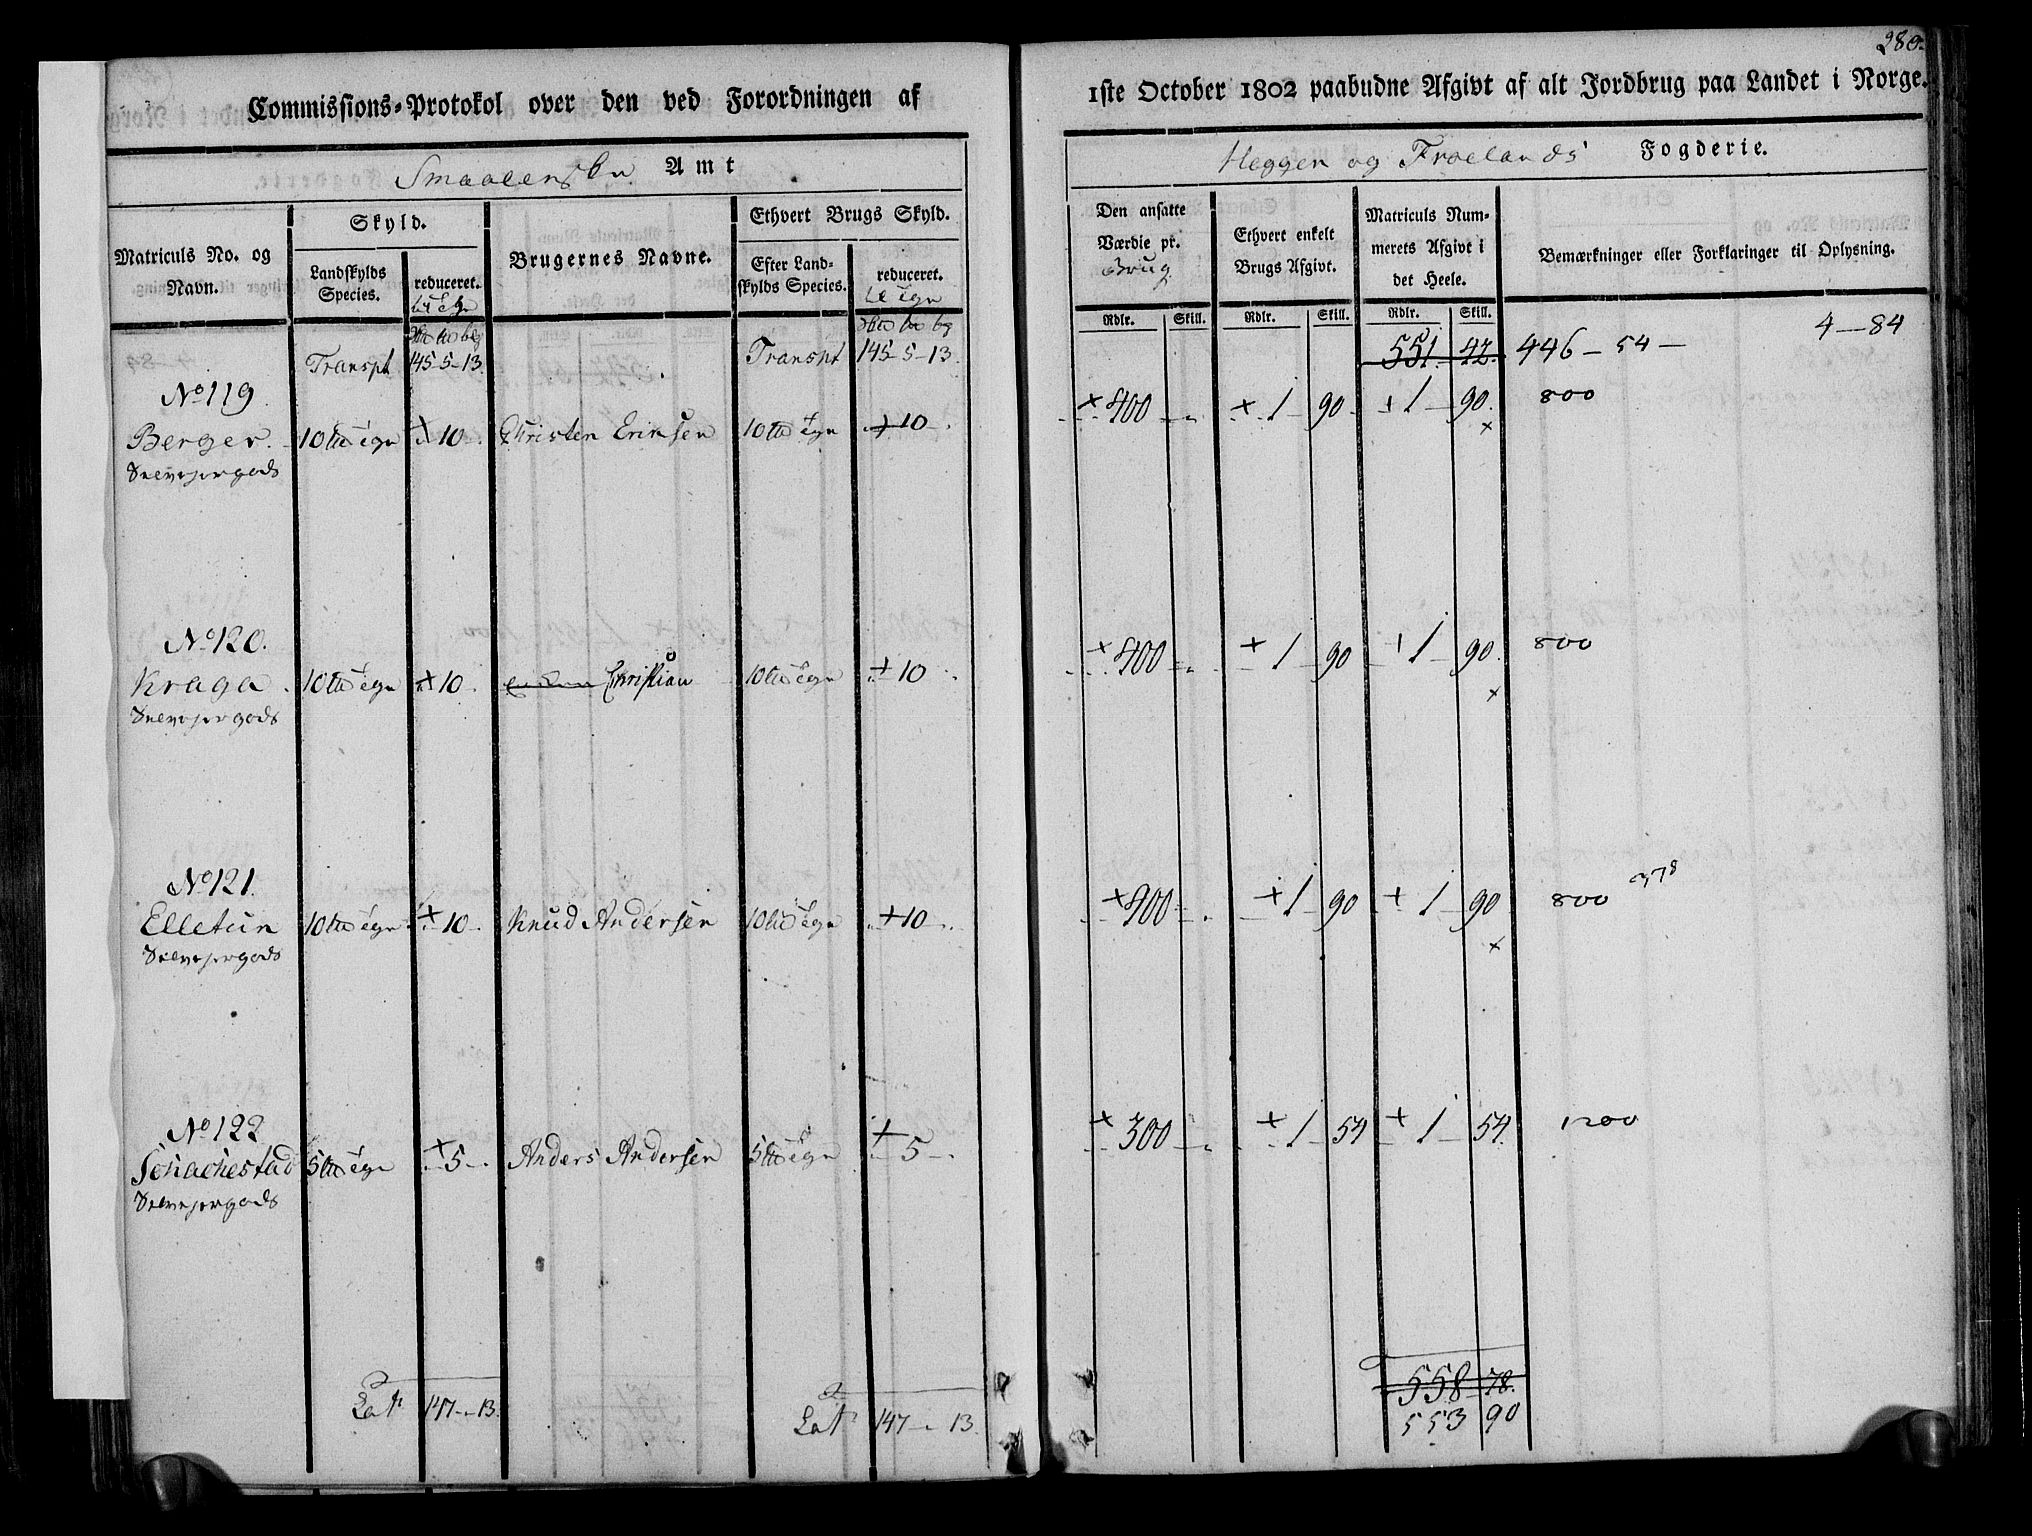 280.
Commissions-Protokol over den ved Forordningen af
1ste October 1802 paabudne Afgivt af alt Jordbrug paa Landet i Norge.
Smaalenenes Amt
Heggen og Frøelands Fogderie.
Matriculs No. og Navn.
Skyld.
Landskylds Species.
reduceret.
Brugernes Navne.
Ethvert Brugs Skyld.
Efter Landskylds Species.
reduceret.
Den ansatte Værdie pr. Brug
Ethvert enkelt Brugs Afgivt.
Matriculs Nummerets Afgivt i det Heele.
Bemærkninger eller Forklaringer til Oplysning.
Rdlr. Skill. Rdlr. Skill. Rdlr. Skill.
Transpt 145-5-13 Transpt 145-5-13. 551. 42. 446-54- 4-84
No 119
Berger. 10 + 10. Christen 10 + 10. + 400 + 1 90. + 1 90. 800
Selvejergods ×
No 120.
Kraga. 10 + 10. Christian 10 + 10 + 400 + 1 90 + 1 90. 800
Selvejergods ×
No 121.
Elletun 10 + 10. Knud Andersen 10 + 10. + 400 + 1 90 + 1 90 800 378
Selvejergods ×
No 122
5 + 5. Anders Andersen 5 + 5. + 300 + 1 54 + 1 54. 1200
Selvejergods
558 78.
Lat 147 - 13. Lat 147 - 13. 553 90